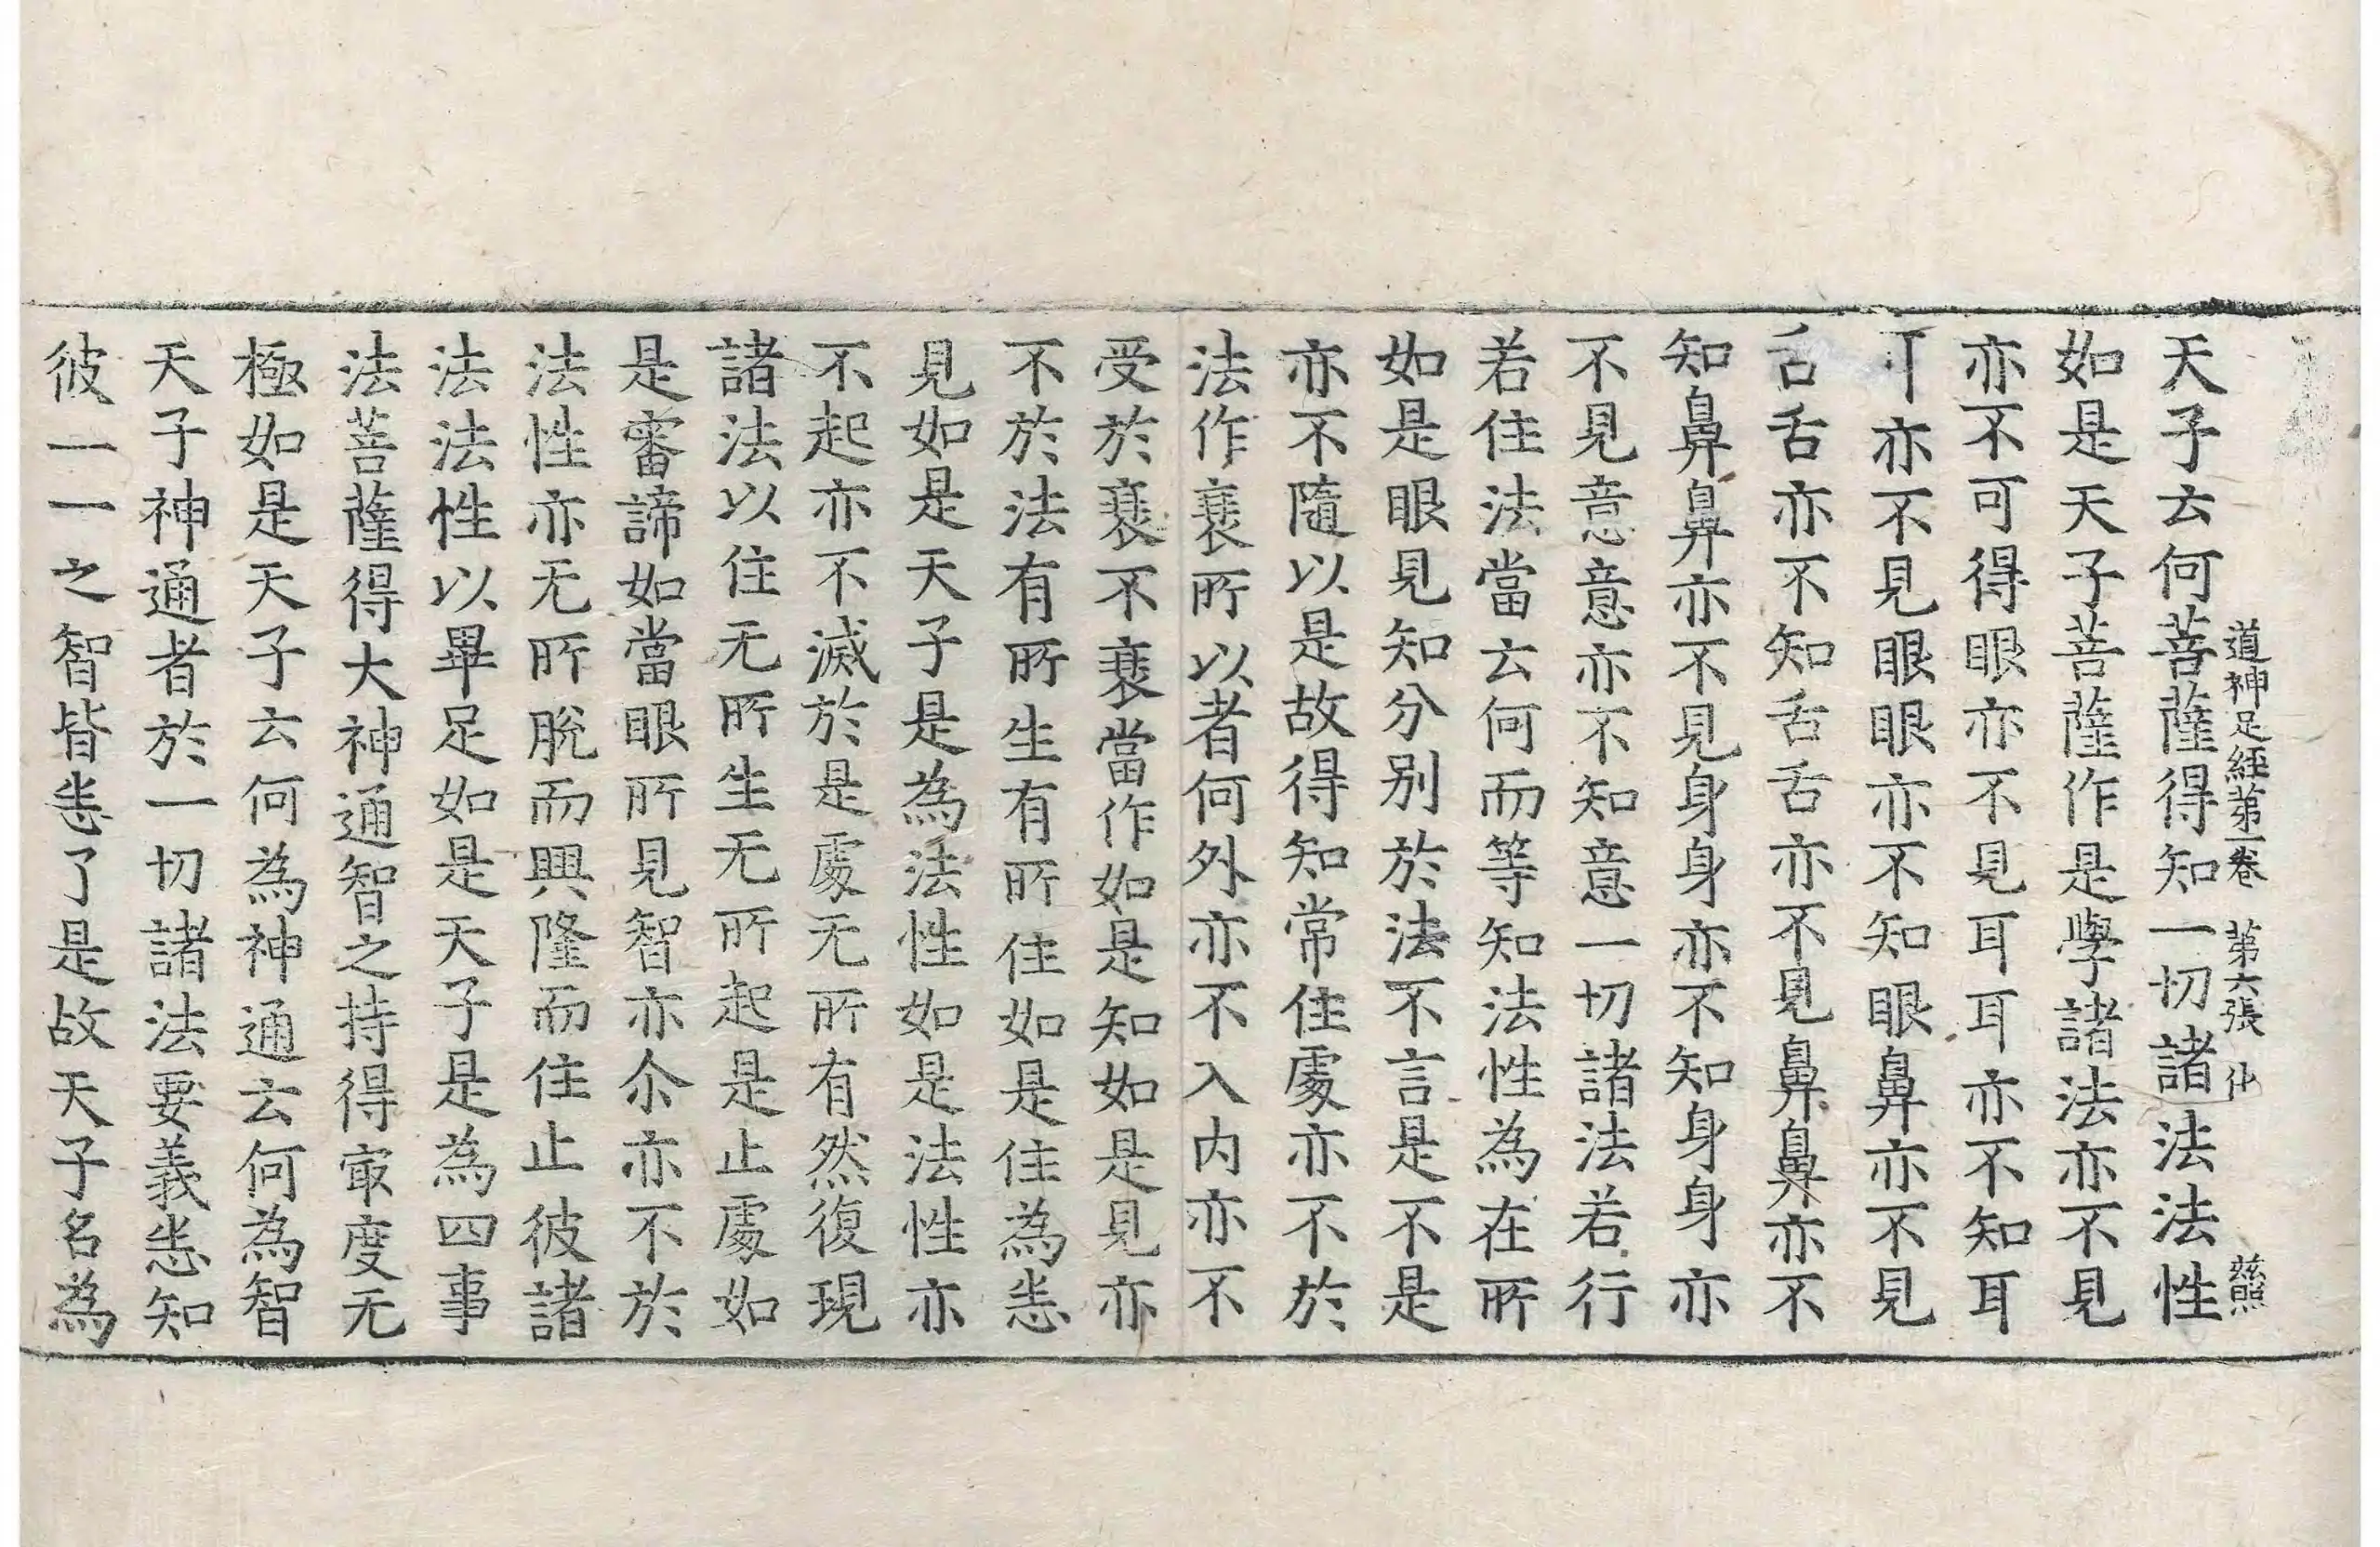 道神足經第一卷　第六張　仕　慈照
天子云何菩薩得知一切諸法法性
如是天子菩薩作是學諸法亦不見
亦不可得眼亦不見耳耳亦不知耳
亦不見眼眼亦不知眼鼻亦不見
舌舌亦不知舌舌亦不見鼻鼻亦不
知鼻鼻亦不見身身亦不知身身亦
不見意意亦不知意一切諸法若行
若住法當云何而等知法性為在所
如是眼見知分別於法不言是不是
亦不隨以是故得知常住處亦不於
法作裏所以者何外亦不入内亦不
受於裏不裏當作如是知如是見亦
不於法有所生有所住如是住為悉
見如是天子是為法性如是法性亦
不起亦不滅於是處无所有然復現
諸法以住无所生无所起是止處如
是審諦如當眼所見智亦尒亦不於
法性亦无所脫而興隆而住止彼諸
法法性以畢足如是天子是為四事
法菩薩得大神通智之持得㝡度无
極如是天子云何為神通云何為智
天子神通者於一切諸法要義悉知
彼一一之智皆悉了是故天子名為